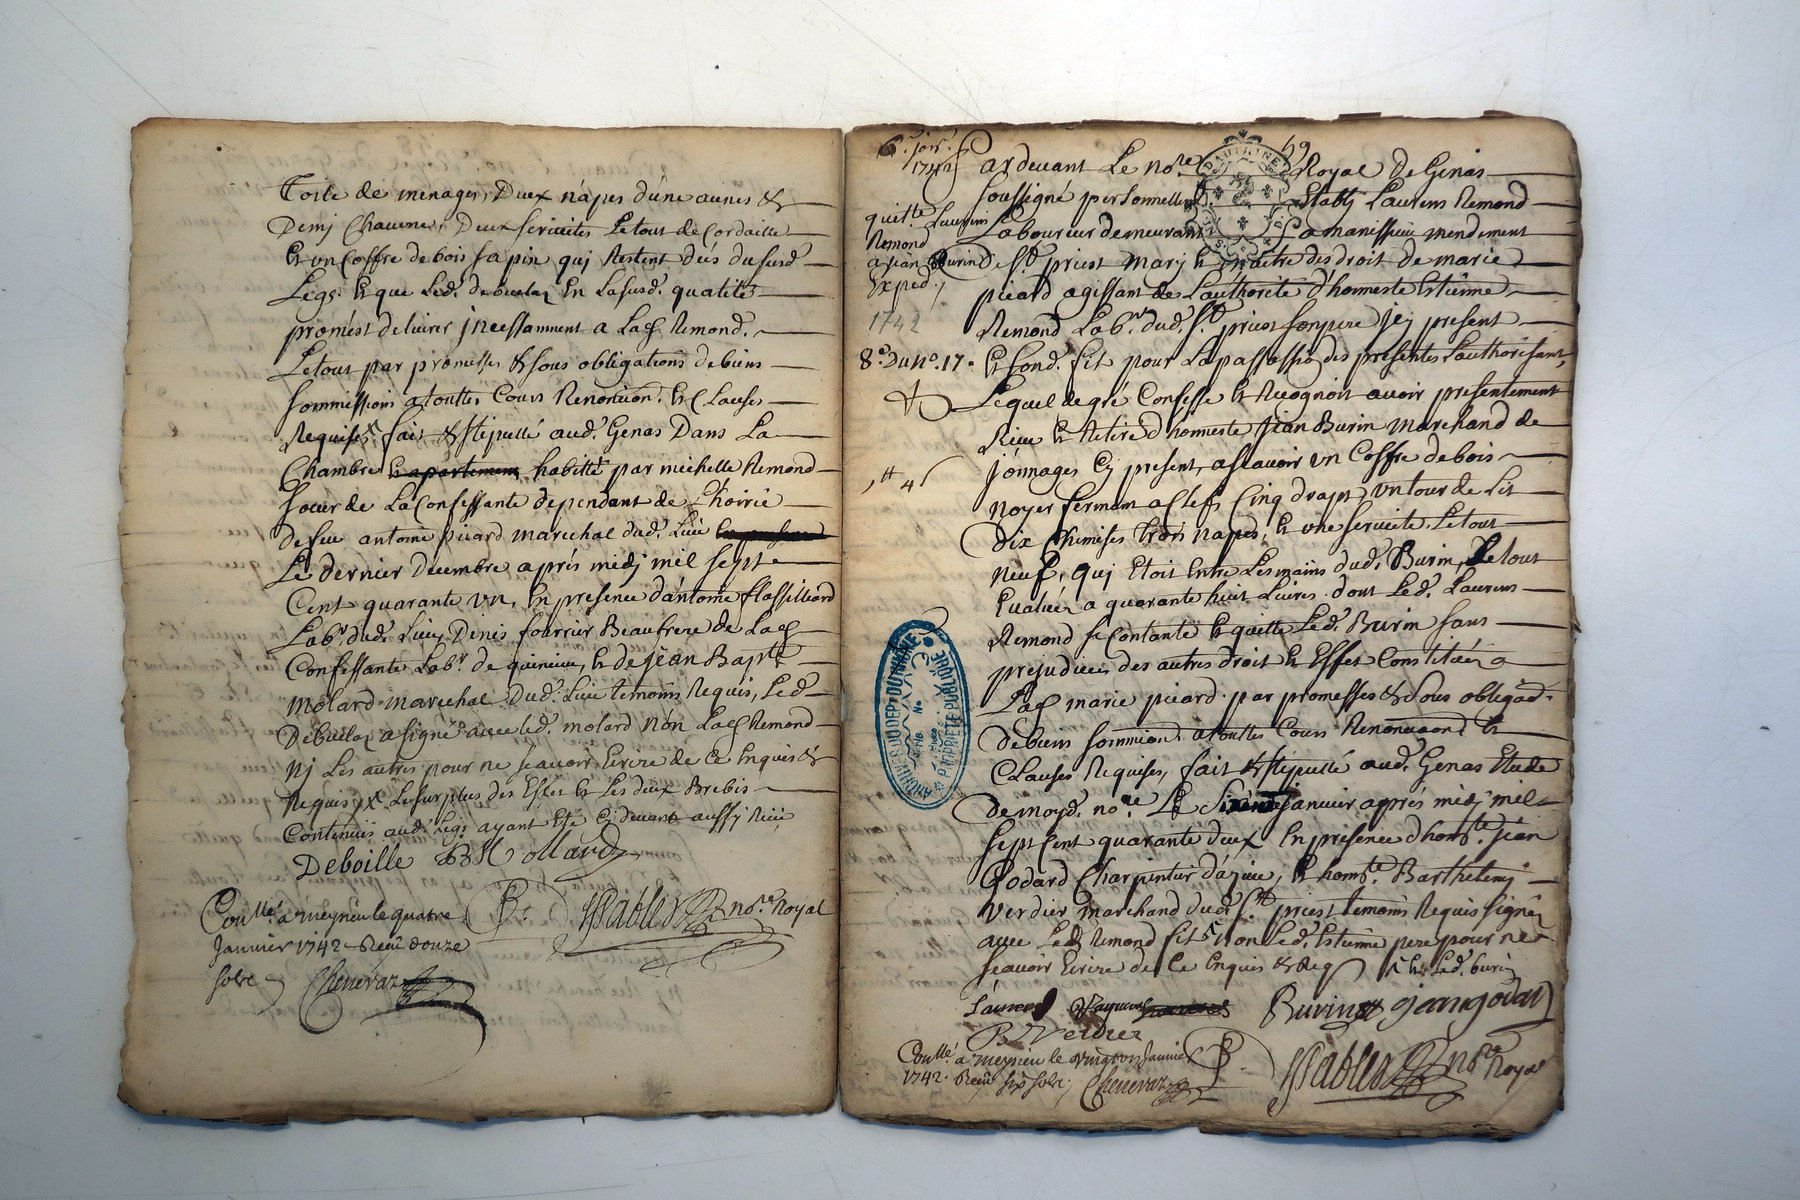 Toile de menages, Deux nápes d'une aunes &
Demj Chacune, Deux serviettes Le tout de Cordaille
Et un Coffre de bois sapin quj Restent deüs du susd.
Legs. Et que Led. debuclaz En La susd. qualité
promést delivrer jncessamment a Lad. Remond.
Le tout par promesses & sous obligations de biens
sommissions a touttes Cours Renontion. Et Clauses
Requises, fait & stipullé aud. Genas Dans La
Chambre Et apartement habitté par michelle Remond
soeur de La Confessante dependant de L'hoirie
de feu antoine picard marechal dud. Lieu
Le dernier decembre aprés midj mil sept
Cent quarante un, En presence d'antoine flassilliard
Labr. dud. Lieu, Denis fournier Beaufrere de Lad.
Confessante Labr. de , Et de jean Bapte
molard marechal dud. Lieu temoins Requis, Led.
Debuclaz a signé avec led. molard Non Lad. Remond
Nj Les autres pour ne scavoir Ecrire de Ce Enquis &
Requis, Le surplus des Effet Et Les deux Brebis
Contenües aud. Legs ayant Eté Cj devant aussj
Deboille B Mollard
Conllé a meyzieu le quatre
Janvier 1742 Receu douze
sols Chenevaz
P. Sablier nore. Royal
6e. janr.
1742
59
Par devant Le Nore. Royal De Genas
soussigné personnellemt. Etablj Laurens Remond
Laboureur demeurant a manissieu mendement
De St. priest marij Et maitre des droit de marie
picard agissant de L'authorité d'honneste Estienne
Remond Labr. dud. St. priest son pere jcj present
Et sond. fit pour La passassion des presentes L'authorisant,
Lequel de gré Confesse Et Recognoit avoir presentement
Receu Et Retiré d'honneste jean Burin marchand de
jonnages Cj present, asçavoir un Coffre de bois
noyer fermant a Clefs Cinq draps, un tour de Lit
Dix Chemises trois napes, Et une serviette, Le tout
neuf, quj Etoit Entre Les mains dud. Burin, Le tout
Evalüé a quarante huit Livres dont Led. Laurens
Remond se Contante Et quitte Led. Burin sans
prejudice des autres droit Et Effet Constitüéz a
Lad. marie picard par promesses & sous obligaõ.
de biens sommion. a touttes Cours Renontiaõn. Et
Clauses Requises, fait & stipullé aud. Genas Etude
de moyd. nore. Le janvier aprés midj mil
sept Cent quarante deux En presence d'honte. jean
Godard Charpentier , Et honte. Barthelemj
Verdier marchand dud. St. priest temoins Requis signéz
avec Led. Remond fils non Led. Estienne pere pour ne
scavoir Ecrire de Ce Enquis & Req Et Led. burin
quitte. Laurens
Remond
a jean Burin
Expéd.
1742
8e. Du No. 17.
Laurens Burin jean godar
B Verdier
Conllé a meyzieu le vingt janvier
1742. Receu six sols. Chenevaz
P. Sablier nore Royal
ARCHIVES DU DEP. DU RHÔNE
PROPRIETE PUBLIQUE